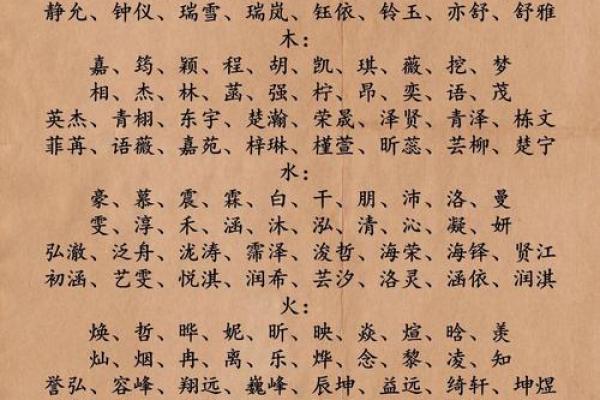 静允、钟仪、瑞雪、瑞岚、钰依、铃玉、亦舒、舒雅
木：
嘉、筠、颖、程、胡、凯、琪、薇、挖、梦
相、杰、林、菡、强、柠、昂、奕、语、茂
英杰、青栩、东宇、楚瀚、荣晟、泽贤、青泽、栋文
菲苒、语薇、嘉苑、梓琳、槿萱、昕蕊、芸柳、楚宁
水：
豪、慕、震、霖、白、干、朋、沛、洛、曼
雯、淳、禾、涵、沐、泓、清、沁、凝、妍
弘澈、泛舟、泷涛、霈泽、浚哲、海荣、海铎、贤江
初涵、艺雯、悦淇、润希、芸汐、洛灵、涵依、润淇
火：
焕、哲、晔、妮、昕、映、焱、煊、晗、羡
灿、烟、冉、离、乐、烨、念、黎、凌、知
誉弘、容峰、翔远、巍峰、辰坤、益远、绮轩、坤煜